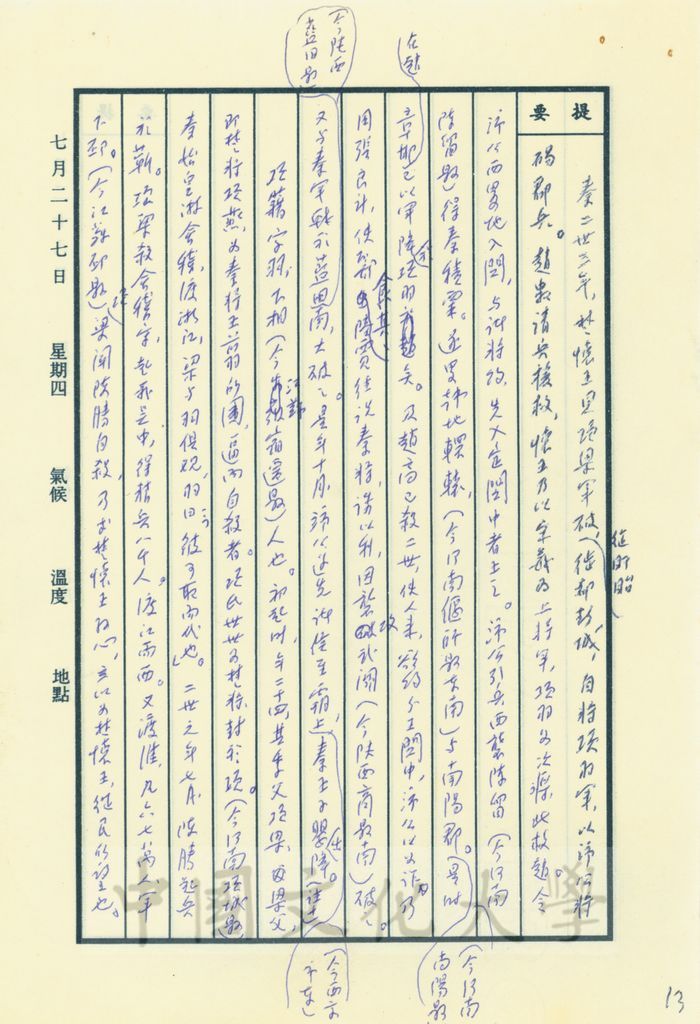 提要
秦二世三年，楚懷王見項梁軍破，（從盱眙）（徙都彭城，自將項羽軍，以沛公將
碭郡兵。趙數請兵援救，懷王乃以宋義為上將軍，項羽為次將，北救趙。令
沛公西略地入關，与諸將約，先入定關中者王之。沛公引兵西襲陳留（今河南
陳留縣）得秦積粟。遂略韓地轘轅，（今河南偃師縣東南）与南陽郡。（今河南南陽縣）是時
章邯已以軍降項羽（在趙）矣。及趙高已殺二世，使人來，欲約分王關中，沛公以為詐，乃
用張良計，使酈食其、陸賈往說秦將，誘以利，因襲攻武關（今陝西商縣南）破之。
又与秦軍戰於藍田南，（今陝西藍田縣）大破之。是年十月，沛公遂先諸侯至霸上，（今西安市東）秦王子嬰降
項籍字羽，下相（今江蘇宿遷縣）人也。初起時，年二十四，其季父項梁，梁父
即楚將項燕，為秦將王翦所圍，逼而自殺者。項氏世世為楚將，封於項。（今河南項城縣）
秦始皇游會稽，渡浙江，梁与羽俱觀，羽曰：「彼可取而代也。」二世元年七月，陳勝起兵
於蘄。項梁殺會稽守，起義吳中，得精兵八千人。渡江而西。又渡淮，凡六七萬人，軍
下邳。（今江蘇邳縣）項梁聞陳勝自殺，乃求楚懷王孫心，立以為楚懷王，從民所望也。
七月二十七日　星期四　氣候　溫度　地點
中國文化大學
13